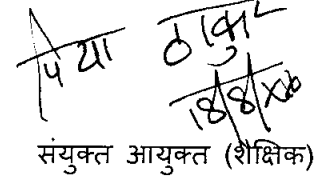 पिया ठाकुर
18/8/2020
संयुक्त आयुक्त (शैक्षिक)